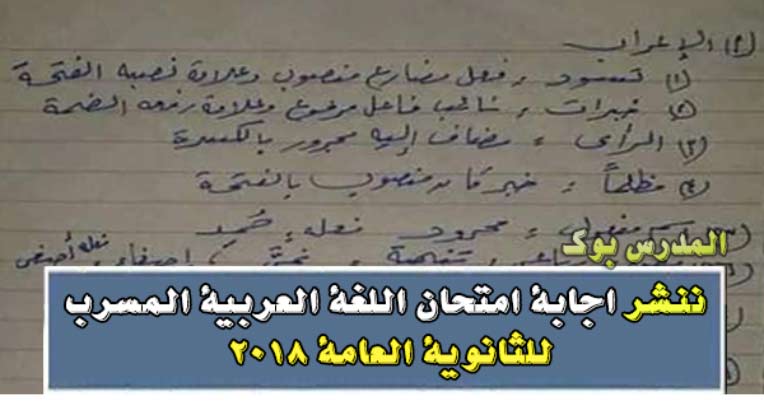 (٢) الإعراب
(١) تسود ، فعل مضارع منصوب وعلامة نصبه الفتحة
(٢) خبرات ، نائب فاعل مرفوع وعلامة رفعه الضمة
(٣) الرأى ، مضاف إليه مجرور بالكسرة
(٤) مظلماً ، خبر كان منصوب بالفتحة
محمود فعله حُمِد
المدرس بوك
ننشر اجابة امتحان اللغة العربية المسرب
للثانوية العامة ٢٠١٨